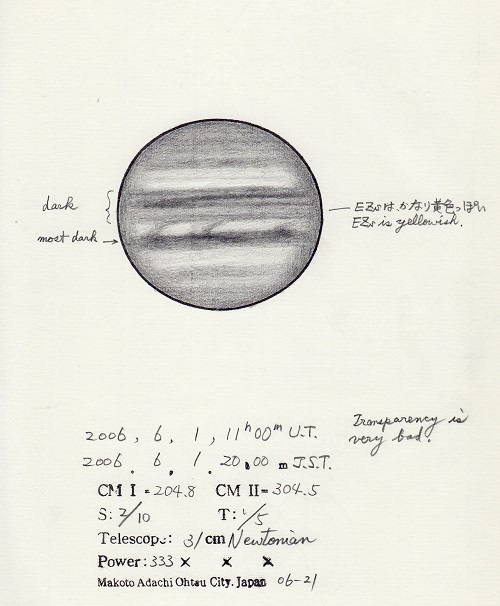 dark
most dark
EZsは、かなり黄色っぽい
EZs is yellowish.
Transparency is
very bad.
2006, 6, 1, 11h00m U.T.
2006. 6. 1. 20.00 m J.S.T.
CM I = 204.8 CM II= 304.5
S: 2/10 T: 1/5
Telescope: 31 cm Newtonian
Power: 333 × × ×
Makoto Adachi Ohtsu City. Japan 06-21